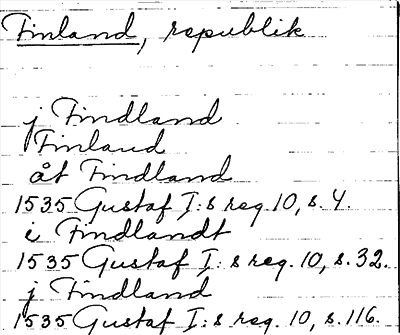 Finland, republik
j Findland
Finland
åt Findland
1535 Gustaf I:s reg. 10, s. 4.
i Findlandt
1535 Gustaf I:s reg. 10, s. 32.
j Findland
1535 Gustaf I:s reg. 10, s. 116.